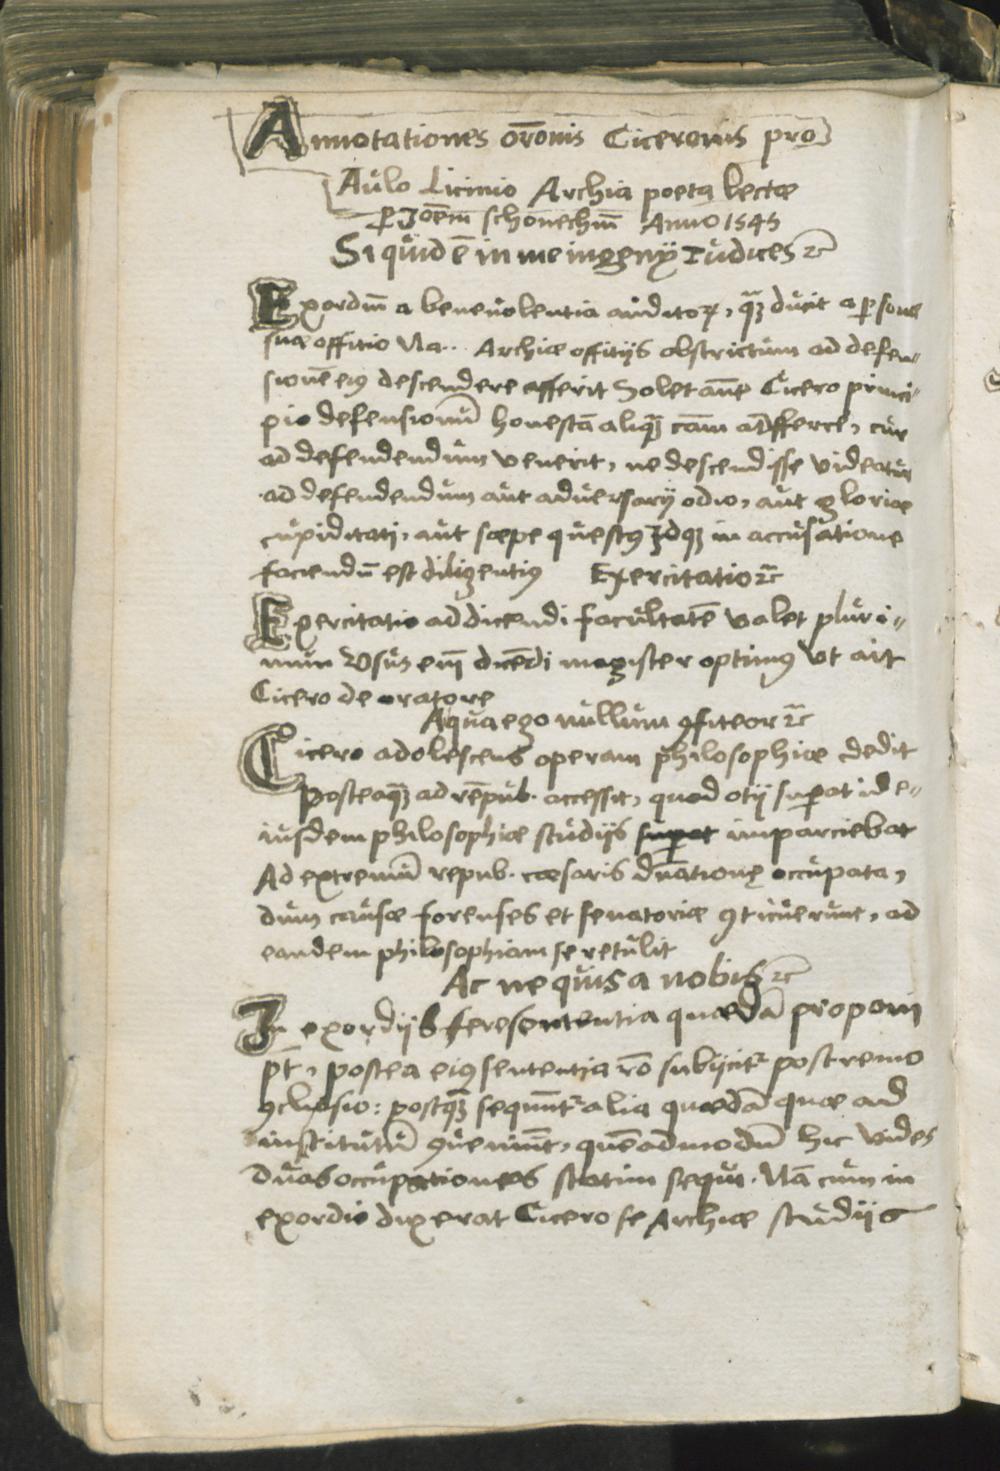 Annotationes orõnis Ciceronis pro
Aulo Licinio Archia poeta lectæ
ꝑ Joẽm schonechm̃ Anno 1545
Si quid ẽ in me ingenij Iudices ꝛc̃
Exordiũ a benevolentia auditoꝝ, quã ducit a ꝑsonæ
suæ offitio Na.. Archiæ offitijs obstrictum ad defen„
sionẽ eiꝰ descendere asserit Solet aũt Cicero princi„
pio defensionũ honestã aliquã cãm adfferre, cur
ad defendendum venerit, ne descendisse videatur
ad defendendum aut adversarij odio, aut gloriæ
cupiditati, aut sæpe questꝰ Idqꝫ in accusatione
faciendũ est diligentiꝰ Exercitatio ꝛc̃
Exercitatio ad dicendi facultatẽ valet pluri„
mum Usus em̃ dicẽdi magister optimꝰ ut ait
Cicero de oratore
A qua ego nullum ꝯfiteor ꝛc̃
Cicero adolescens operam philosophiæ dedit
Posteaqꝫ ad rẽpub. accessit, quod otij suꝑat id e„
iusdem philosophiæ studijs suꝑat imparciebat
Ad extremũ repub. cæsaris dñatione occupata,
dum causæ forenses et senatoriæ ꝯticuerunt, ad
eandem philosophiam se retulit
Ac ne quis a nobis ꝛc̃
In exordijs fere sententia quædã proponi
pt̃, postea eiꝰ sententia rõ subijcitꝛ postremo
ꝯclusio: postquã sequũtꝛ alia quædã quæ ad
institutũ ꝯveniunt, quẽadmodũ hic vides
duas occupationes statim sequi. Nã cum in
exordio dixerat Cicero se Archiæ studijs